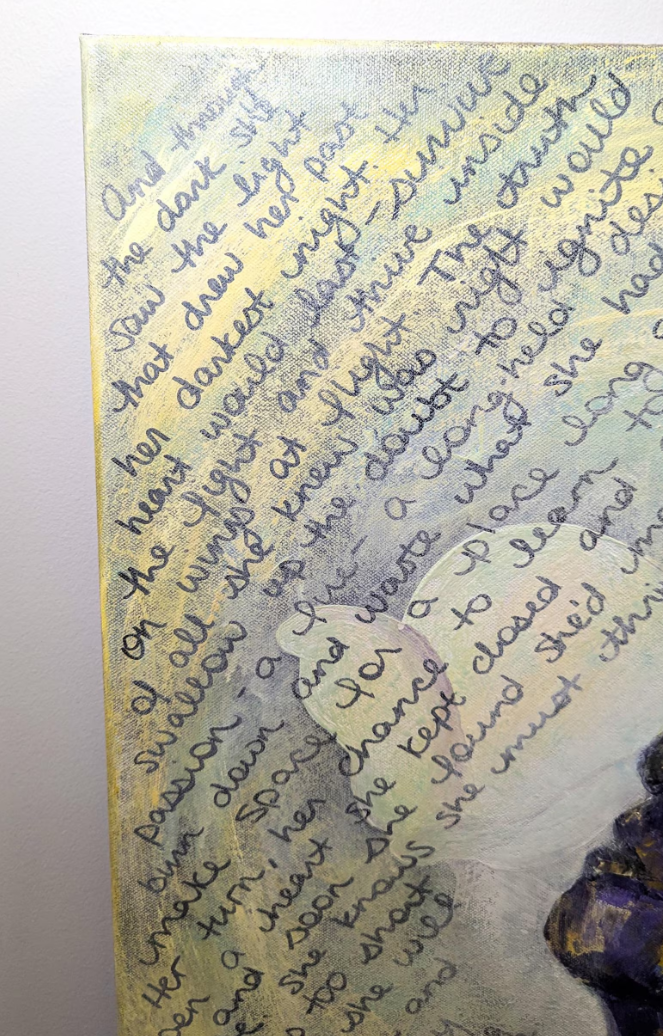 And through
the dark she
saw the light
that drew her past
her darkest night. Her
heart would last - survive
the fight and thrive inside
on wings at flight The truth
of all she knew was right would
swallow up the doubt to ignite
passion - a fire - a long-held des
burn down and waste what she had
make space for a place long
Her turn, her chance to learn to
pen a heart she kept closed and
and soon she found she'd
she knows she must thri
too short
she will
and